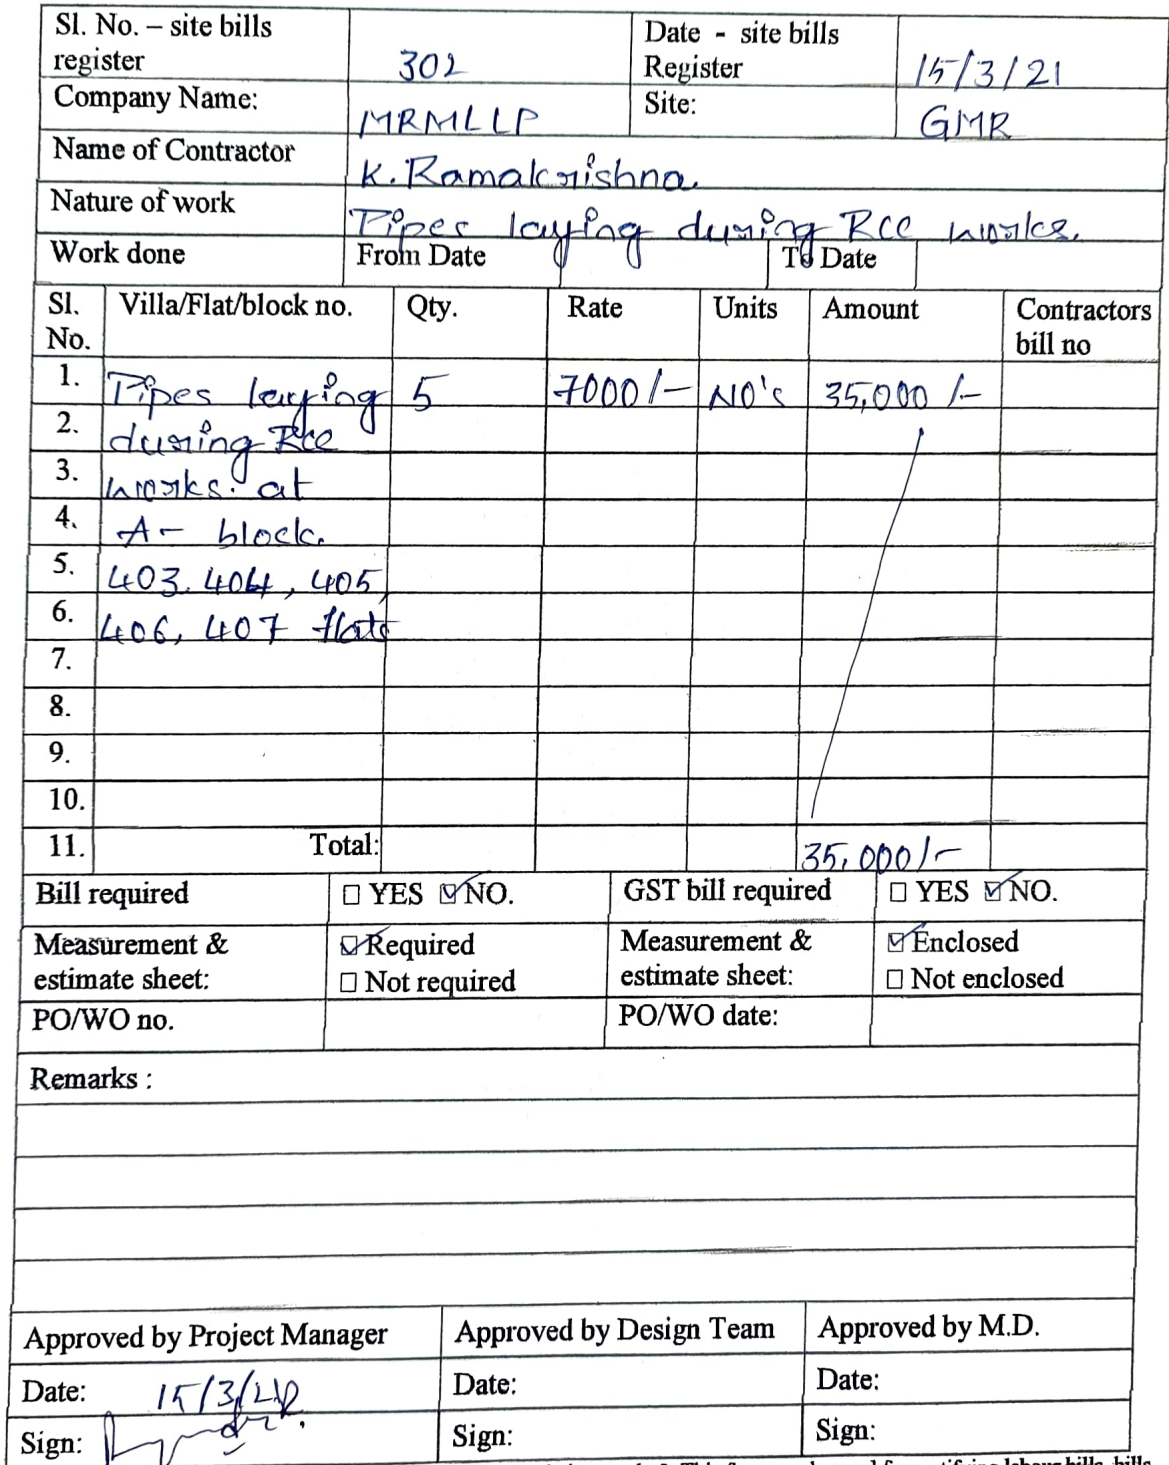 Sl. No. – site bills register 302 Date - site bills Register 15/3/21
Company Name: MRMLLP Site: GMR
Name of Contractor K. Ramakrishna
Nature of work Pipes laying during RCC works.
Work done From Date To Date
Sl. No. Villa/Flat/block no. Qty. Rate Units Amount Contractors bill no
1. Pipes laying 5 7000/- NO's 35,000/-
2. during Rcc
3. works. at
4. A- block.
5. 403. 404, 405,
6. 406, 407 flats
7.
8.
9.
10.
11. Total: 35,000/-
Bill required ☐ YES ☑ NO. GST bill required ☐ YES ☑ NO.
Measurement & estimate sheet: ☑ Required ☐ Not required Measurement & estimate sheet: ☑ Enclosed ☐ Not enclosed
PO/WO no. PO/WO date:
Remarks :
Approved by Project Manager Approved by Design Team Approved by M.D.
Date: 15/3/21 Date: Date:
Sign: Sign: Sign: